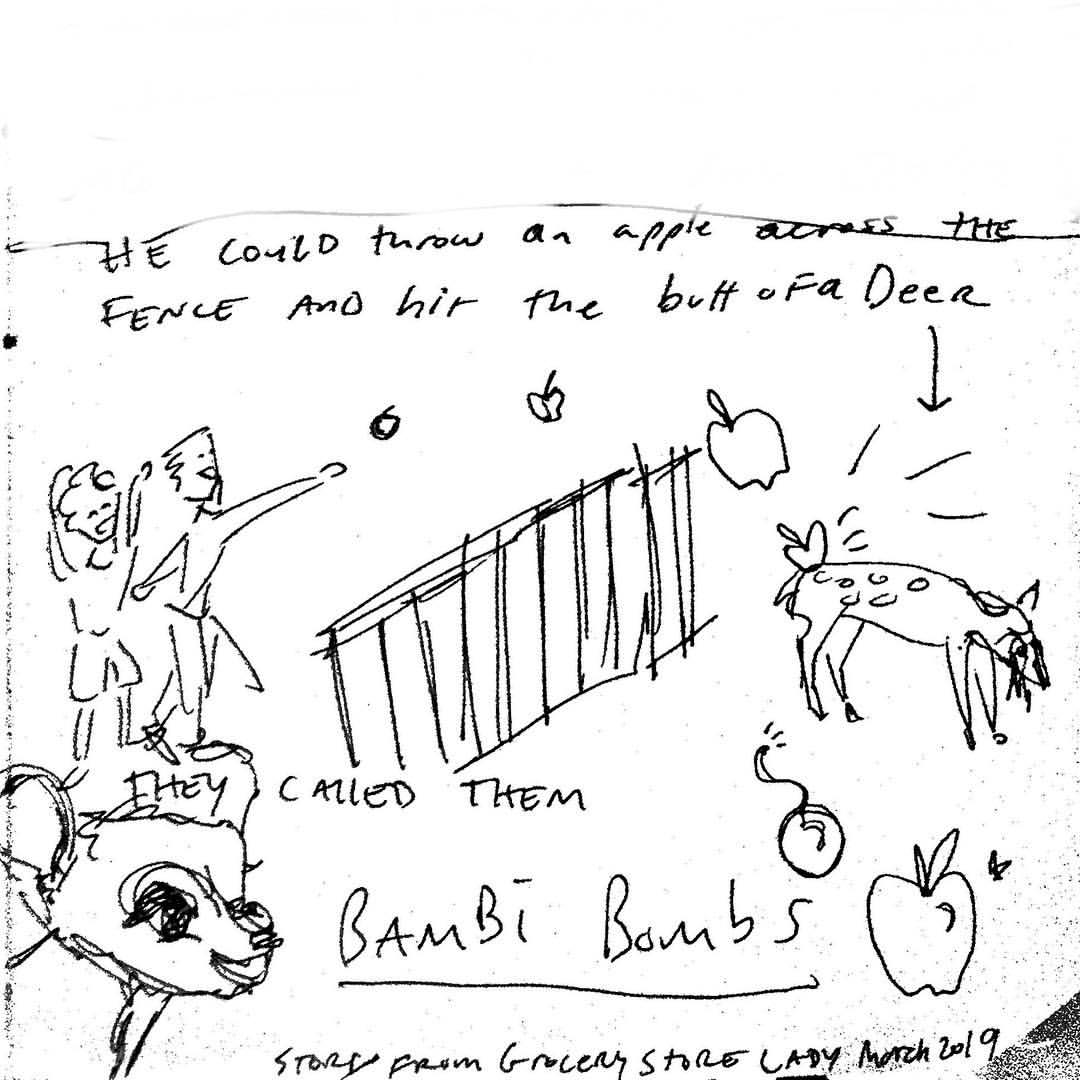 HE COULD throw an apple across THE
FENCE AND hit the butt OF a DEER
THEY CALLED THEM
BAMBI Bombs
STORY FROM GROCERY STORE LADY March 2019